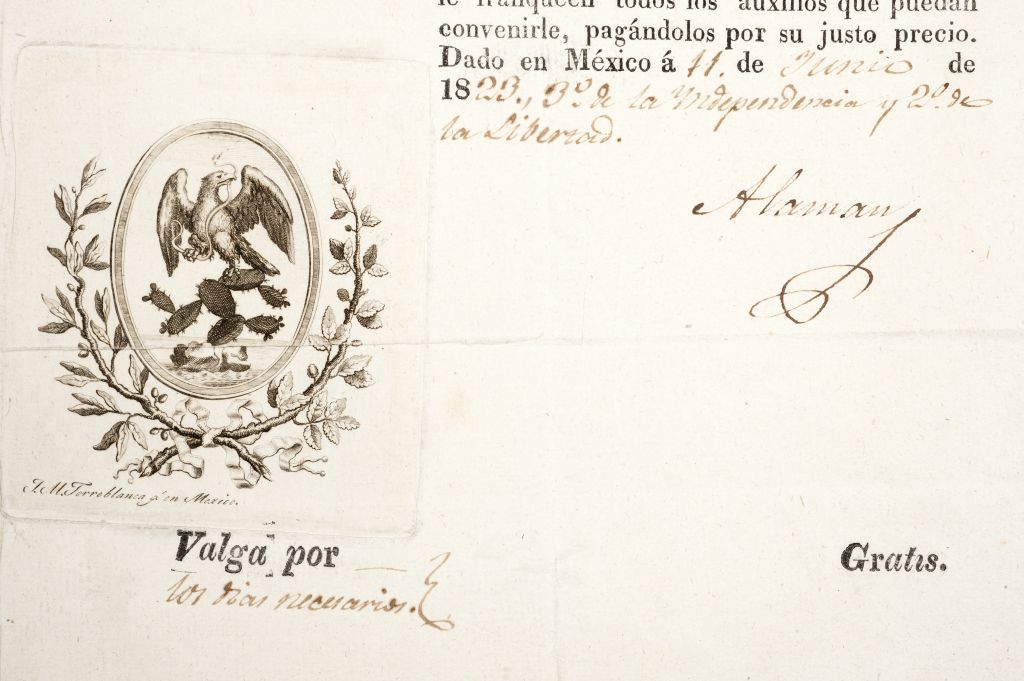 le franqueen todos los auxilios que puedan
convenirle, pagándolos por su justo precio.
Dado en México á 11. de Junio de
1823., 3º. de la Yndependencia y 2º. de
la Libertad.
Alaman
J. M. Torreblanca gº. en Mexico.
Valga por
los dias necesarios.
Gratis.